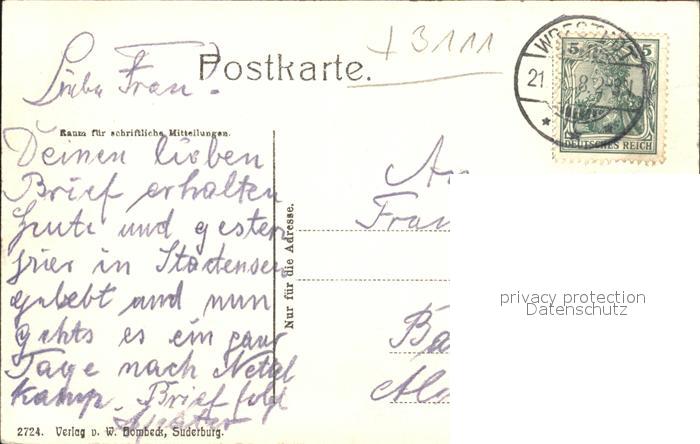 +3111
Postkarte.
Liebe Frau!
WRESTEDT
21
5 5
DEUTSCHES REICH
Raum für schriftliche Mitteilungen.
Deinen lieben
Brief erhalten
heute und gestern
hier in Stadensen
gelebt und nun
gehts es ein paar
Tage nach Nettel
kamp. Brief folgt
Nur für die Adresse.
An
Frau
privacy protection
Datenschutz
2724. Verlag v. W. Hombeck, Suderburg.